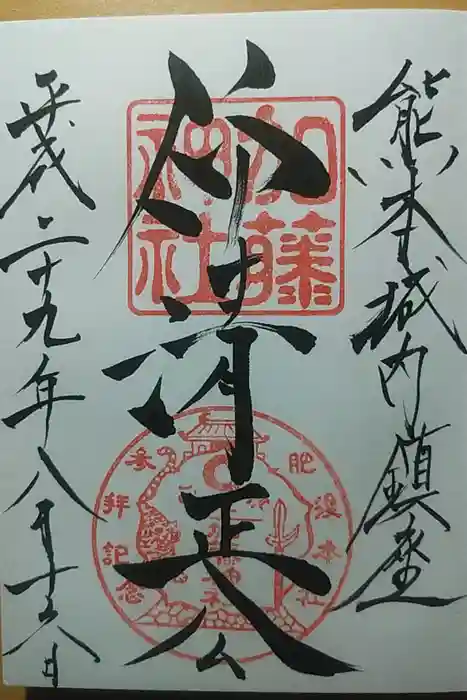 熊本城内鎮座
仰清正公
平成二十九年八月十六日
加藤
神社
参拝記念
加藤神社